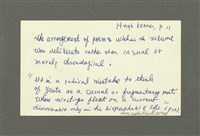 Hugh Kenner, p. 11
"the arrangement of poems within the volume
was deliberate rather than casual or
merely chronological.
"It is a radical mistake to think
of Yeats as a casual or fragmentary poet
whose writings float on a current
discoverable only in his biographical